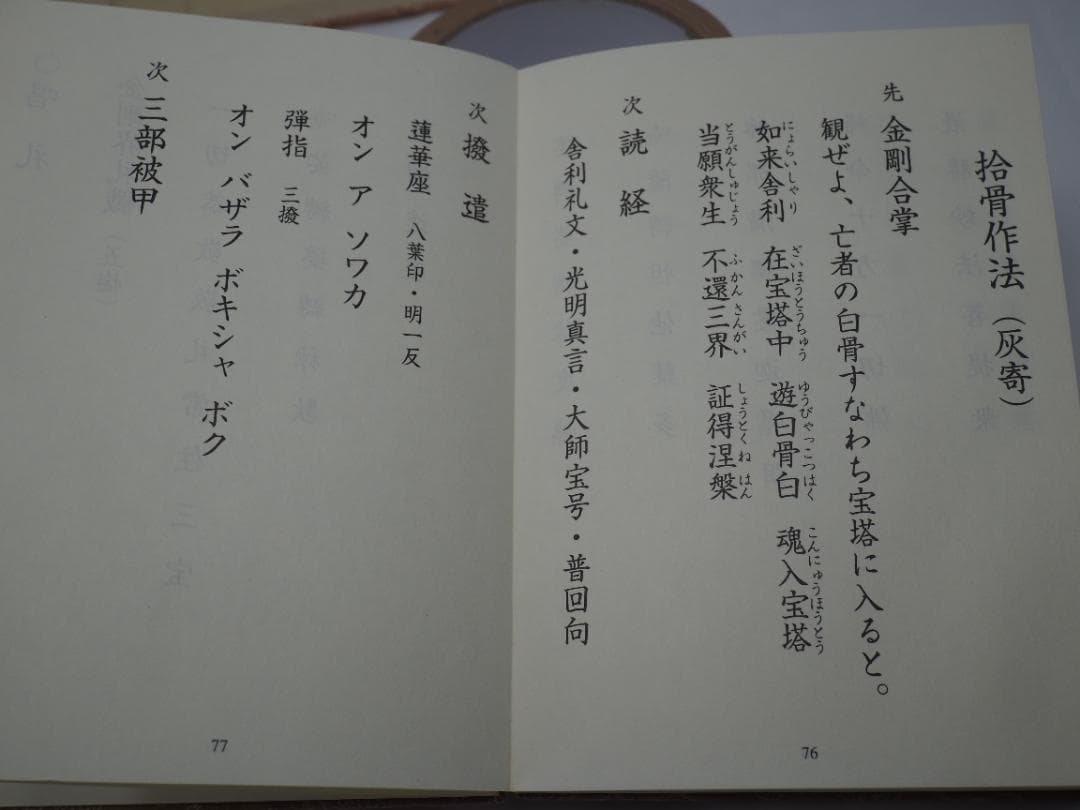 拾骨作法（灰寄）
先 金剛合掌
観ぜよ、亡者の白骨すなわち宝塔に入ると。
如来舎利 在宝塔中 遊白骨白 魂入宝塔
にょらいしゃり ざいほうとうちゅう ゆうびゃっこつはく こんにゅうほうとう
当願衆生 不還三界 証得涅槃
とうがんしゅじょう ふかんさんがい しょうとくねはん
次 読経
舎利礼文・光明真言・大師宝号・普回向
76
次 撥遣
蓮華座 八葉印・明一反
オン ア ソワカ
弾指 三撥
オン バザラ ボキシャ ボク
次 三部被甲
77